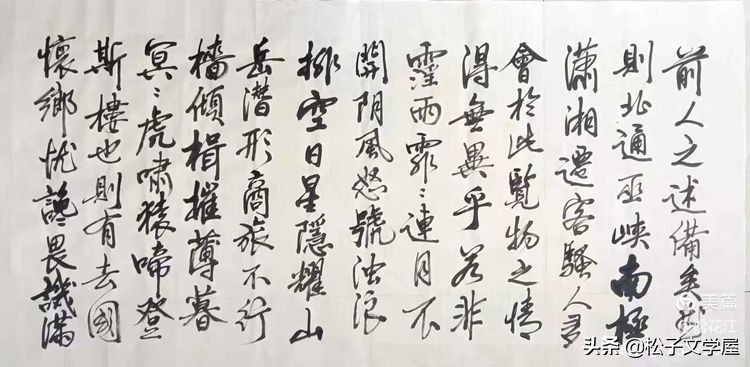 前人之述備矣然
則北通巫峽南極
瀟湘遷客騷人多
會於此覽物之情
得無異乎若非
霪雨霏〻連月不
開阴風怒號浊浪
排空日星隱耀山
岳潜形商旅不行
檣傾楫摧薄暮
冥〻虎嘯猿啼登
斯樓也則有去國
懷鄉忧讒畏譏滿
美篇
头条 @松子文学屋